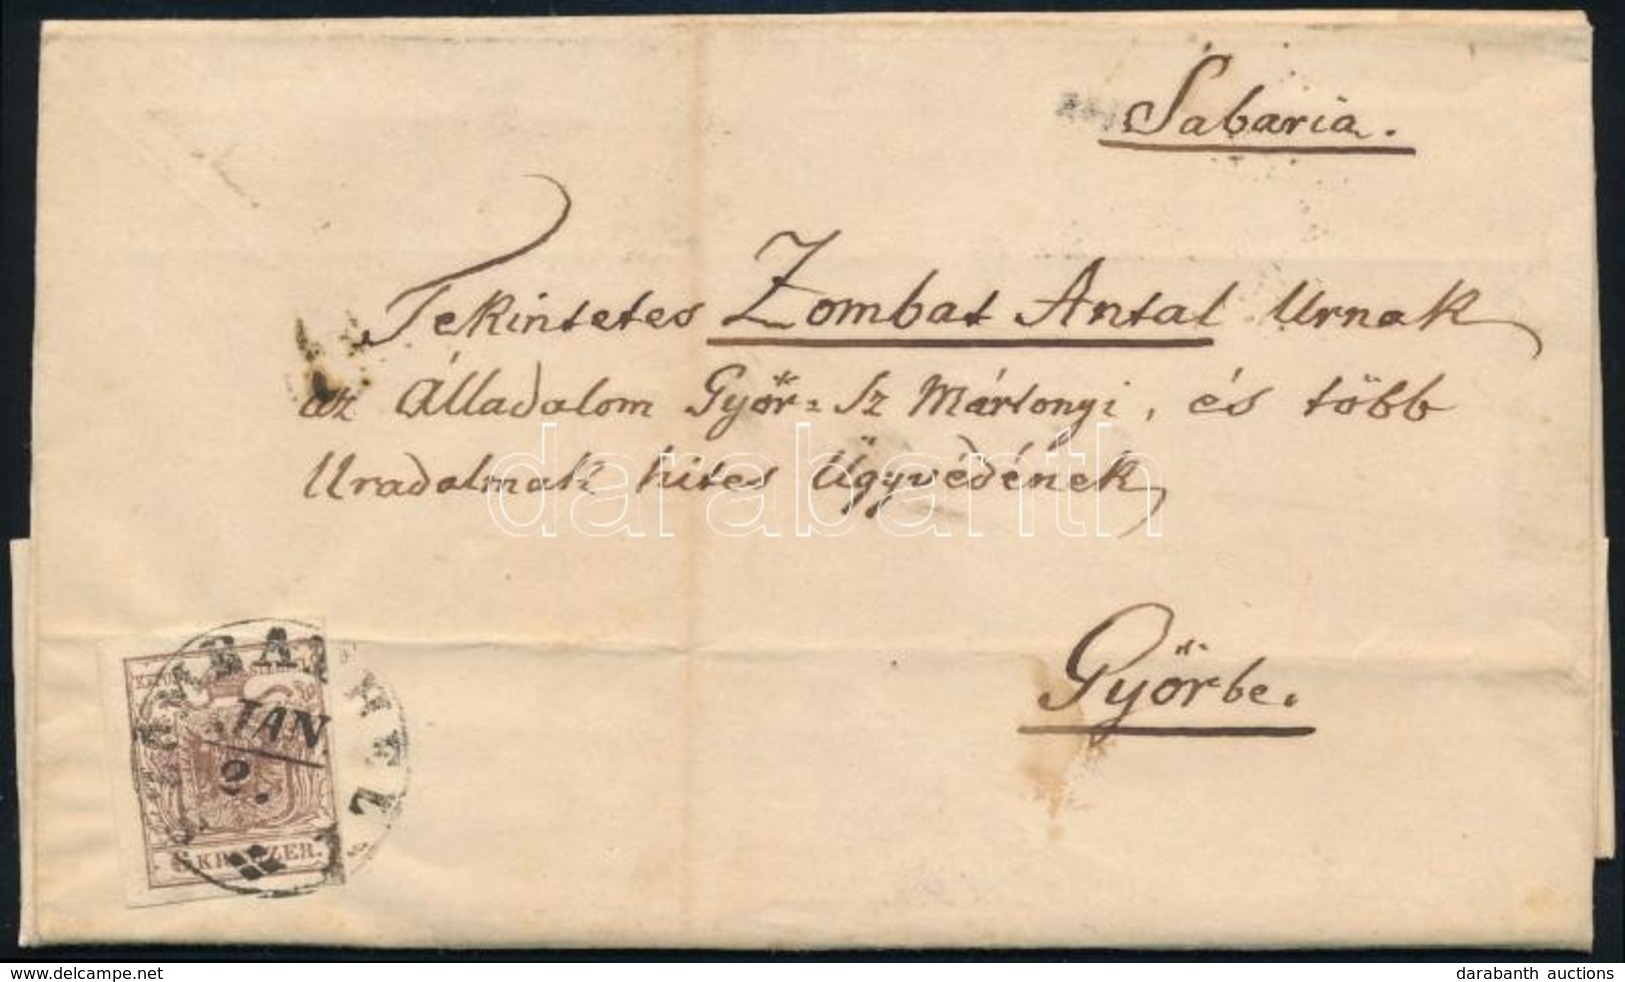 Sabaria.
Tekintetes Zombat Antal Urnak
az Álladalom Győr=Sz Mártonyi, és több
Uradalmak hites Ügyvédének
darabanth
Győrbe.
JAN.
9.
KREUZER.
www.delcampe.net
darabanth auctions